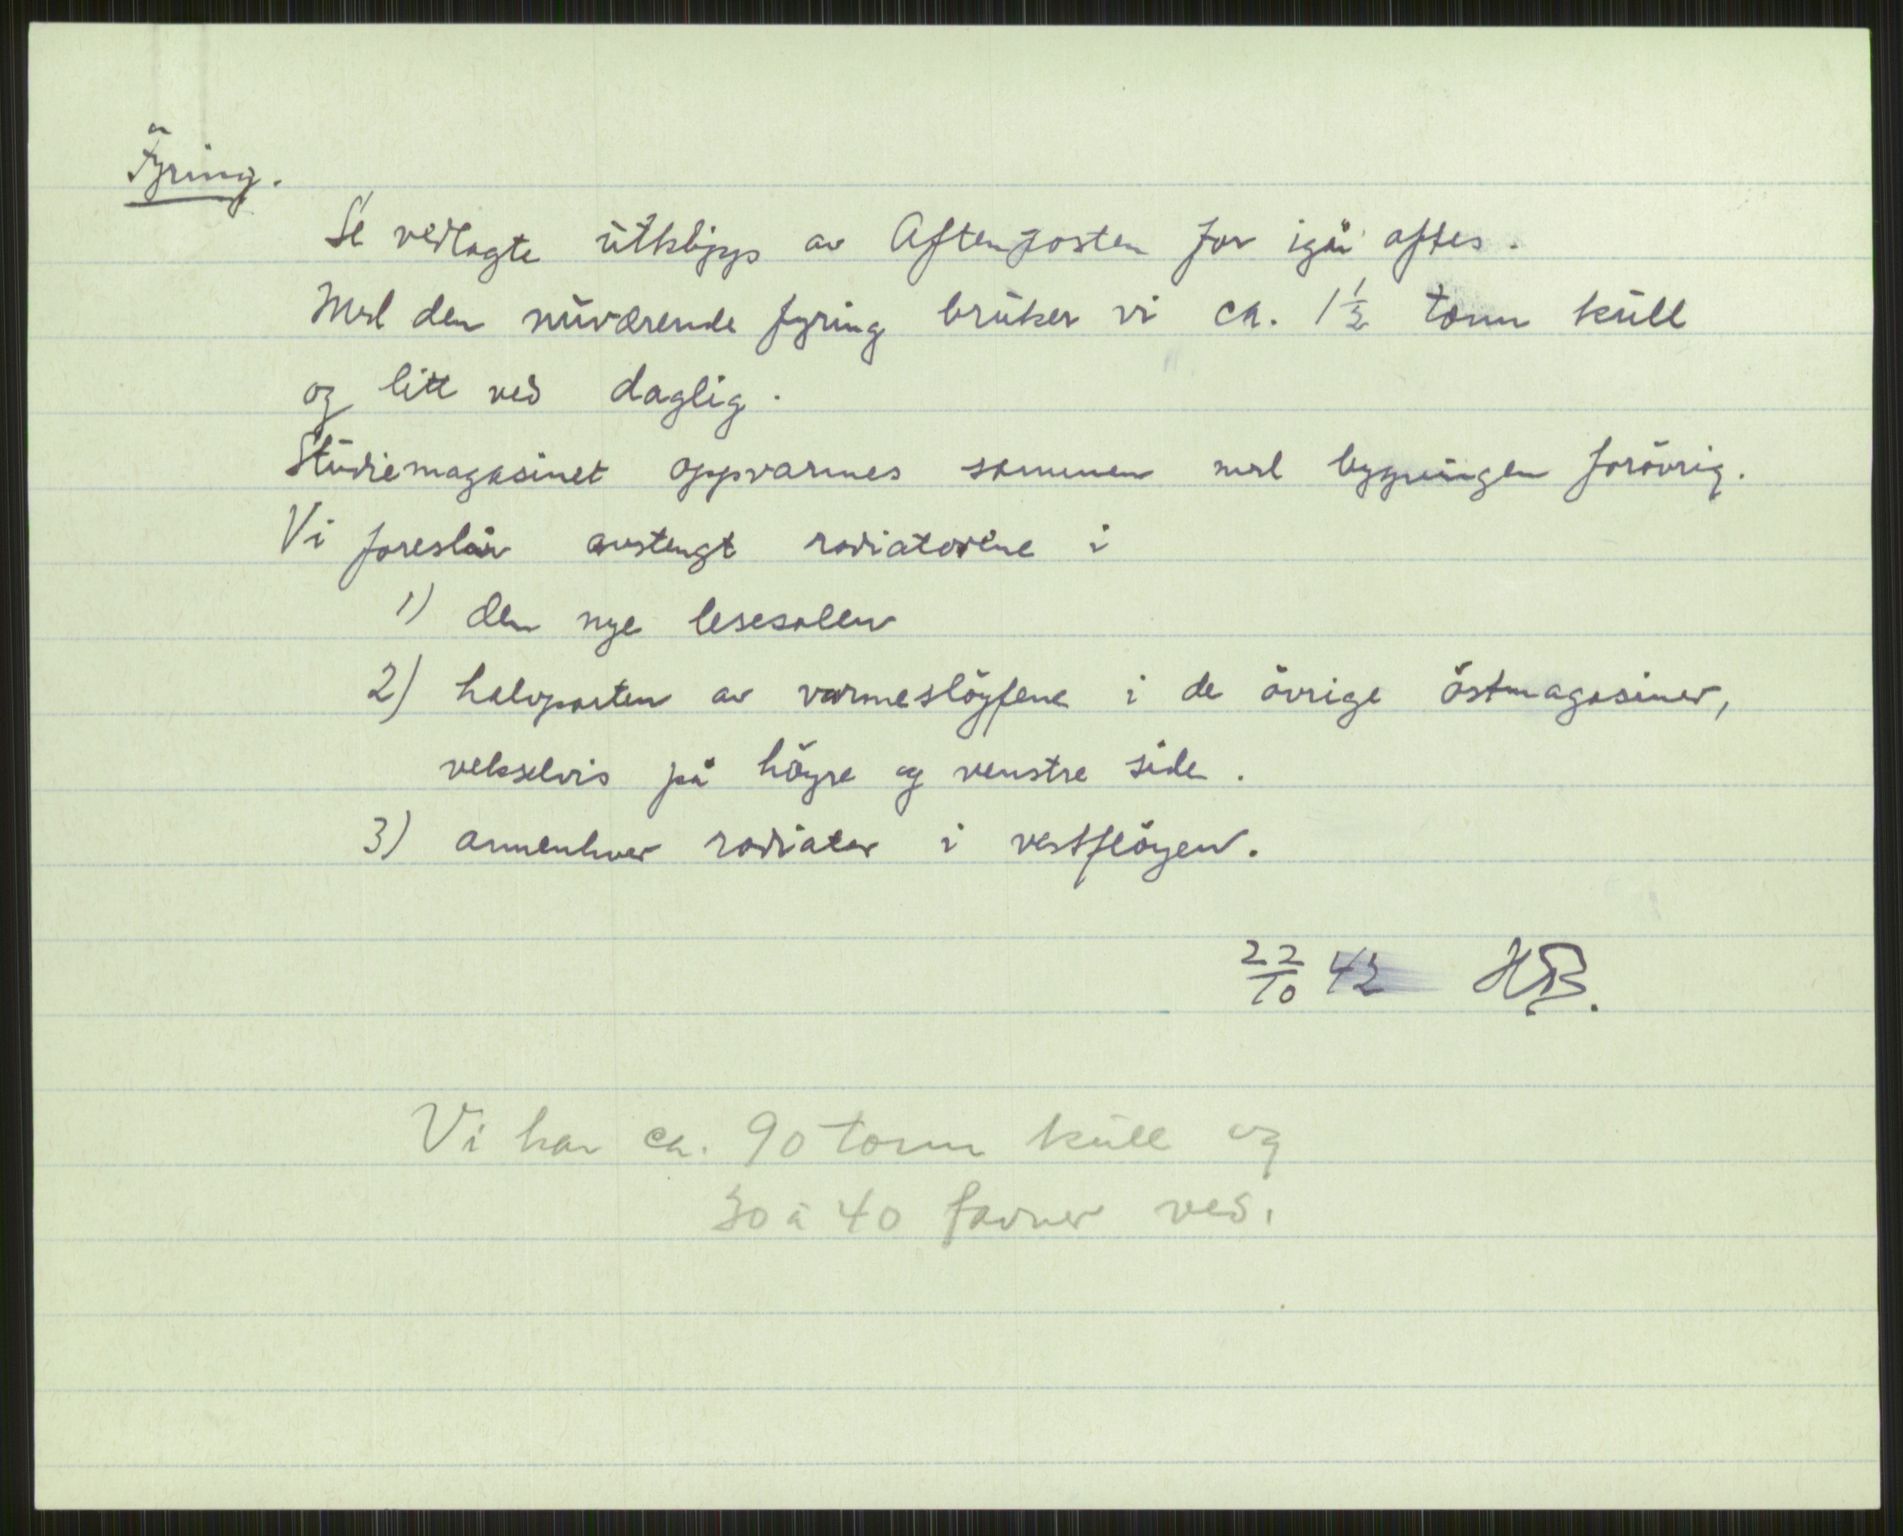 Fyring.
Se vedlagte utklipp av Aftenposten for igår aftes.
Med den nuværende fyring bruker vi ca. 1½ tonn kull
og litt ved daglig.
Studiemagasinet oppvarmes sammen med bygningen forövrig.
Vi foreslår avstengt radiatorene i
1) den nye lesesalen
2) halvparten av varmeslöyfene i de övrige östmagasiner,
vekselvis på höyre og venstre side.
3) annenhver radiator i vestflöyen.
22/10 42 HB.
Vi har ca. 90 tonn kull og
30 à 40 favner ved.